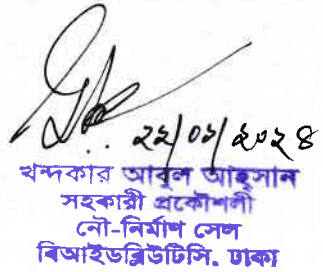 ২২/০১/২০২৪
খন্দকার আবুল আহসান
সহকারী প্রকৌশলী
নৌ-নির্মাণ সেল
বিআইডব্লিউটিসি, ঢাকা